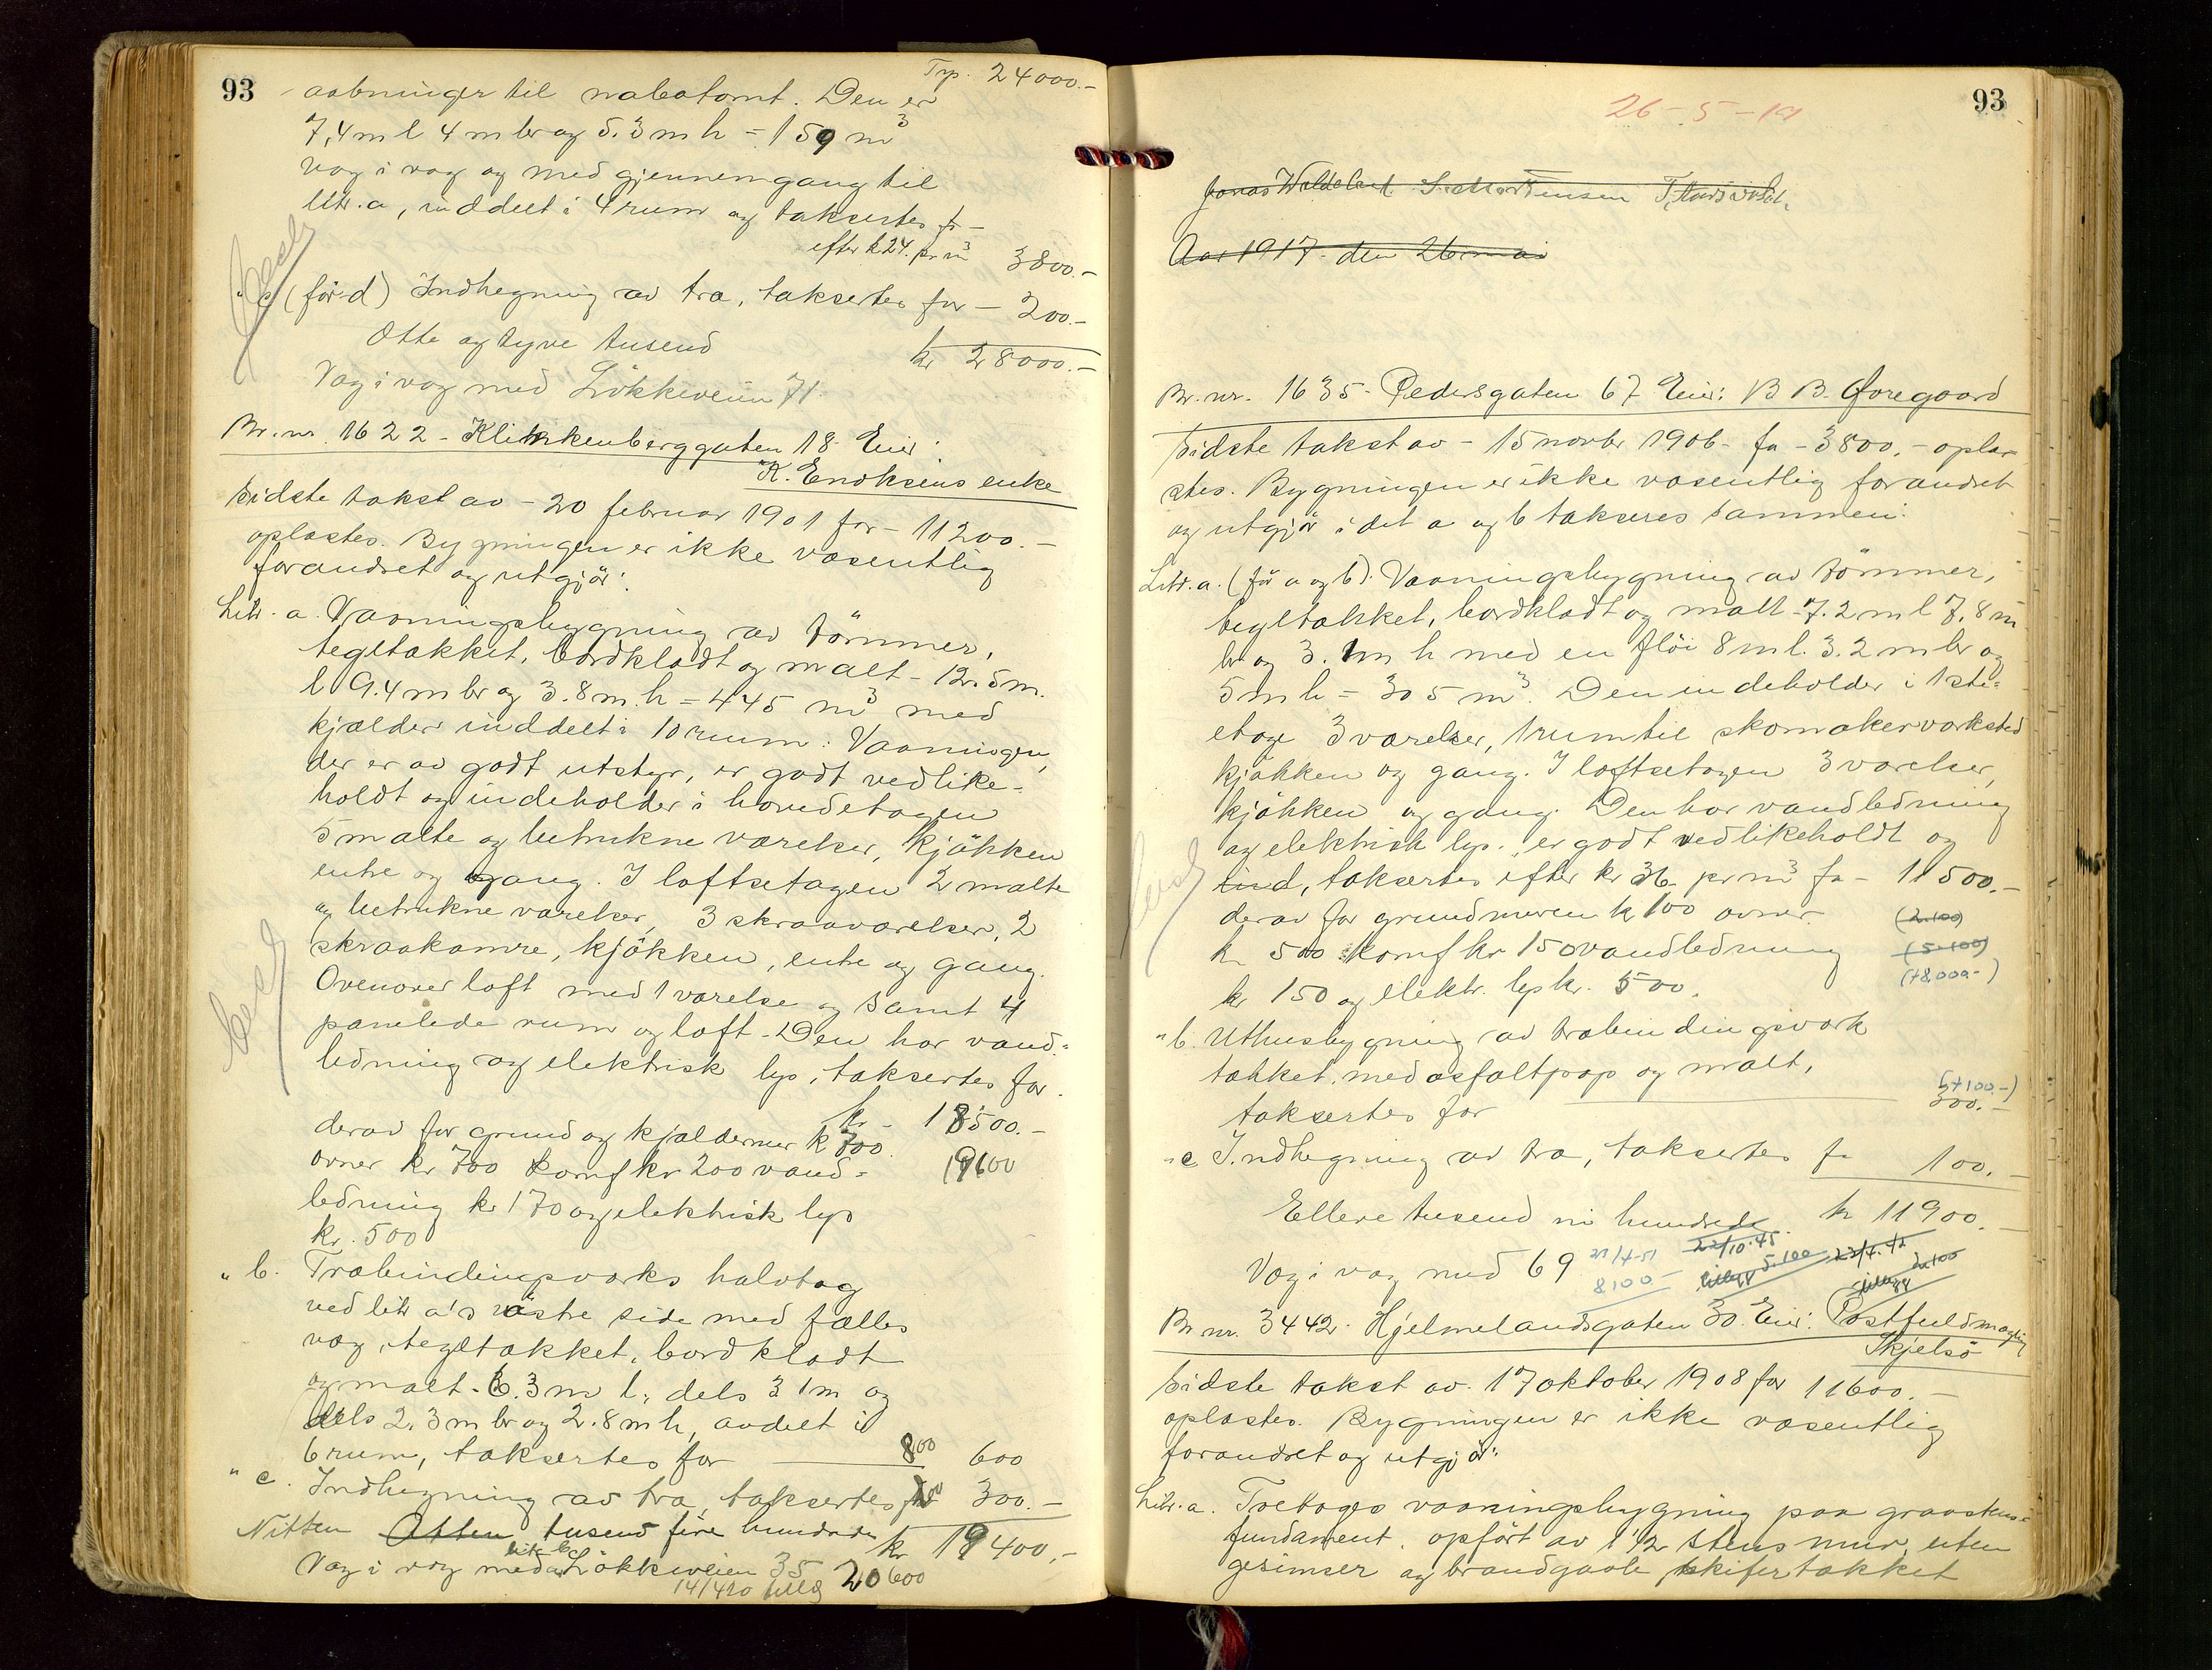 93
Trp. 24000.-
aabninger til nabotomt. Den er
7,4 m l 4 m br og 5.3 m h = 159 m³
væg i væg og med gjennemgang til
litr. a, inddelt i 4 rum og takseres fr -
efter k 24. pr m³ 3800.-
" c (før d) Indhegning av træ, takseres for - 200.-
Otte og tyve tusend kr 28000.-
Væg i væg med Løkkeveien 71.
Br. nr. 1622 - Klinkenberggaten 18 Eier:
K. Enoksens enke
Sidste takst av - 20 februar 1901 for - 11200.-
oplæstes. Bygningen er ikke væsentlig
forandret og utgjør:
Litr. a. Vaaningsbygning av tømmer,
tegltækket, bordklædt og malt - 12.5 m.
l 9.4 m br og 3.8 m. h = 445 m³ med
kjælder inddelt i 10 rum. Vaaningen,
der er av godt utstyr, er godt vedlike-
holdt og indeholder i hovedetagen
5 malte og betrukne værelser, kjøkken
entre og gang. I loftsetagen 2 malte
og betrukne værelser, 3 skraaværelser, 2
skraakamre, kjøkken, entre og gang.
Ovenover loft med 1 værelse og samt 4
panelede rum og loft. Den har vand-
ledning og elektrisk lys, takseres for
kr - 18500.-
derav for grund og kjældermur k 700.
ovner kr 700 Komf kr 200 vand- 19600
ledning kr 170 og elektrisk lys
kr. 500
" b. Træbindingsverks halvtag
ved litr a's østre side med fælles
væg, tegltækket, bordklædt
og malt - 6.3 m l., dels 3 1 m og
dels 2.3 m br og 2.8 m h, avdelt i
6 rum, takseres for 800 600
" c. Indhegning av træ, takseres for 300.-
Nitten Atten tusend fire hundrede kr 19400.-
Væg i væg med litr b Løkkeveien 35 20600
14/4 20 tillæg
93
26-5-19
Jonas Waldeland S. Mortensen
Aar 1917 den 26 mai
Br. nr. 1635 - Pedersgaten 67 Eier: B B. Øregaard
Sidste takst av - 15 novbr 1906 - fr - 3800.- oplæ-
stes. Bygningen er ikke væsentlig forandret
og utgjør idet a og b takseres sammen:
Litr. a. (før a og b). Vaaningsbygning av tømmer,
tegltækket, bordklædt og malt - 7.2 m l 7,8 m
br og 3.1 m h med en fløi 8 m l. 3.2 m br og
5 m h = 305 m³. Den indeholder i 1ste-
etage 3 værelser, 1 rum til skomakerværksted
kjøkken og gang. I loftsetagen 3 værelser,
kjøkken og gang. Den har vandledning
og elektrisk lys., er godt vedlikeholdt og
ind, takseres efter kr 36 pr m³ fr - 11500.-
derav for grundmuren k 100 ovner (2.100)
k 500 Komf kr 150 vandledning (5 100)
kr 150 og elektr. lys kr. 500. (+8,000-)
" b. Uthusbygning av træbindingsværk
tækket med asfaltpap og malt,
takseres for (+100-) 300.-
" c Indhegning av træ, takseres fr 100.-
Elleve tusend ni hundrede. kr 11900.-
Væg i væg med 69 21/4-51 22/10-45. 22/4.42
8100- tillegg 5.100 tillegg 2.100
Br nr. 3442. Hjelmelandsgaten 30. Eier: Postfuldmægtig
Skjelsø
Sidste takst av. 17 oktober 1908 for 11600.-
oplæstes. Bygningen er ikke væsentlig
forandret og utgjør:
Litr. a. Toetages vaaningsbygning paa graastens-
fundament. opført av 1 1/2 stens mur, uten
gesimser og brandgavle, skifertækket